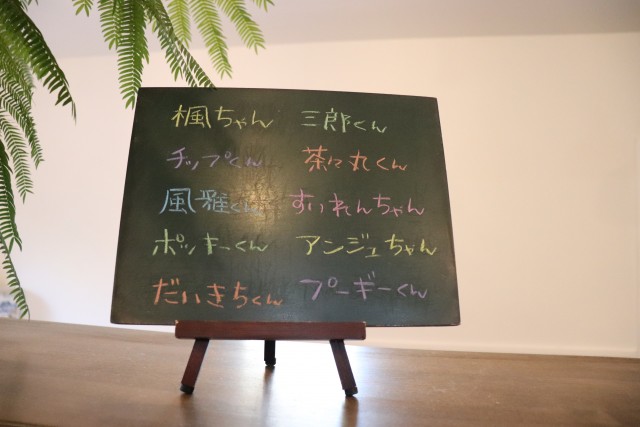 楓ちゃん 三郎くん
チップくん 茶々丸くん
風雅くん すいれんちゃん
ポッキーくん アンジュちゃん
だいきちくん プーギーくん